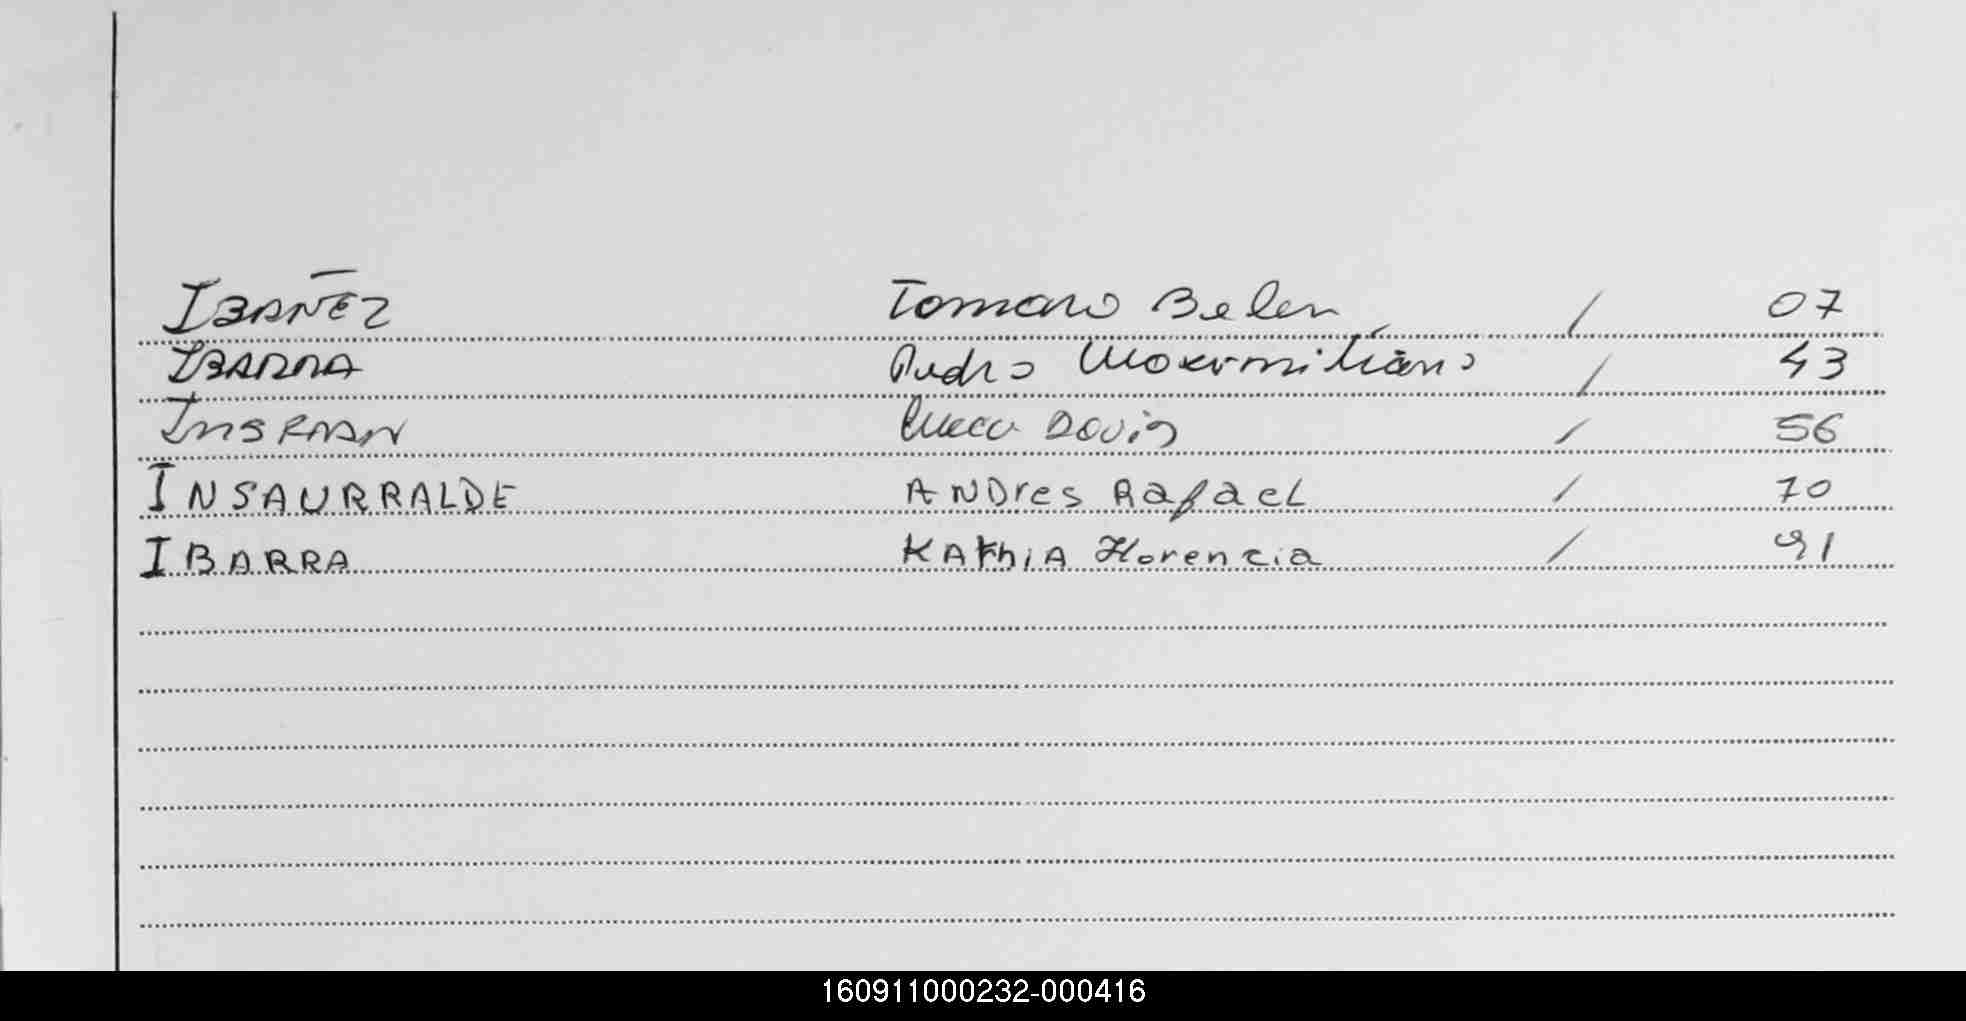 IBAÑEZ Tamara Belen / 07
IBARRA Pedro Maximiliano / 43
/ 56
INSAURRALDE ANDres Rafael / 70
IBARRA KAthiA Florencia / 91
160911000232-000416